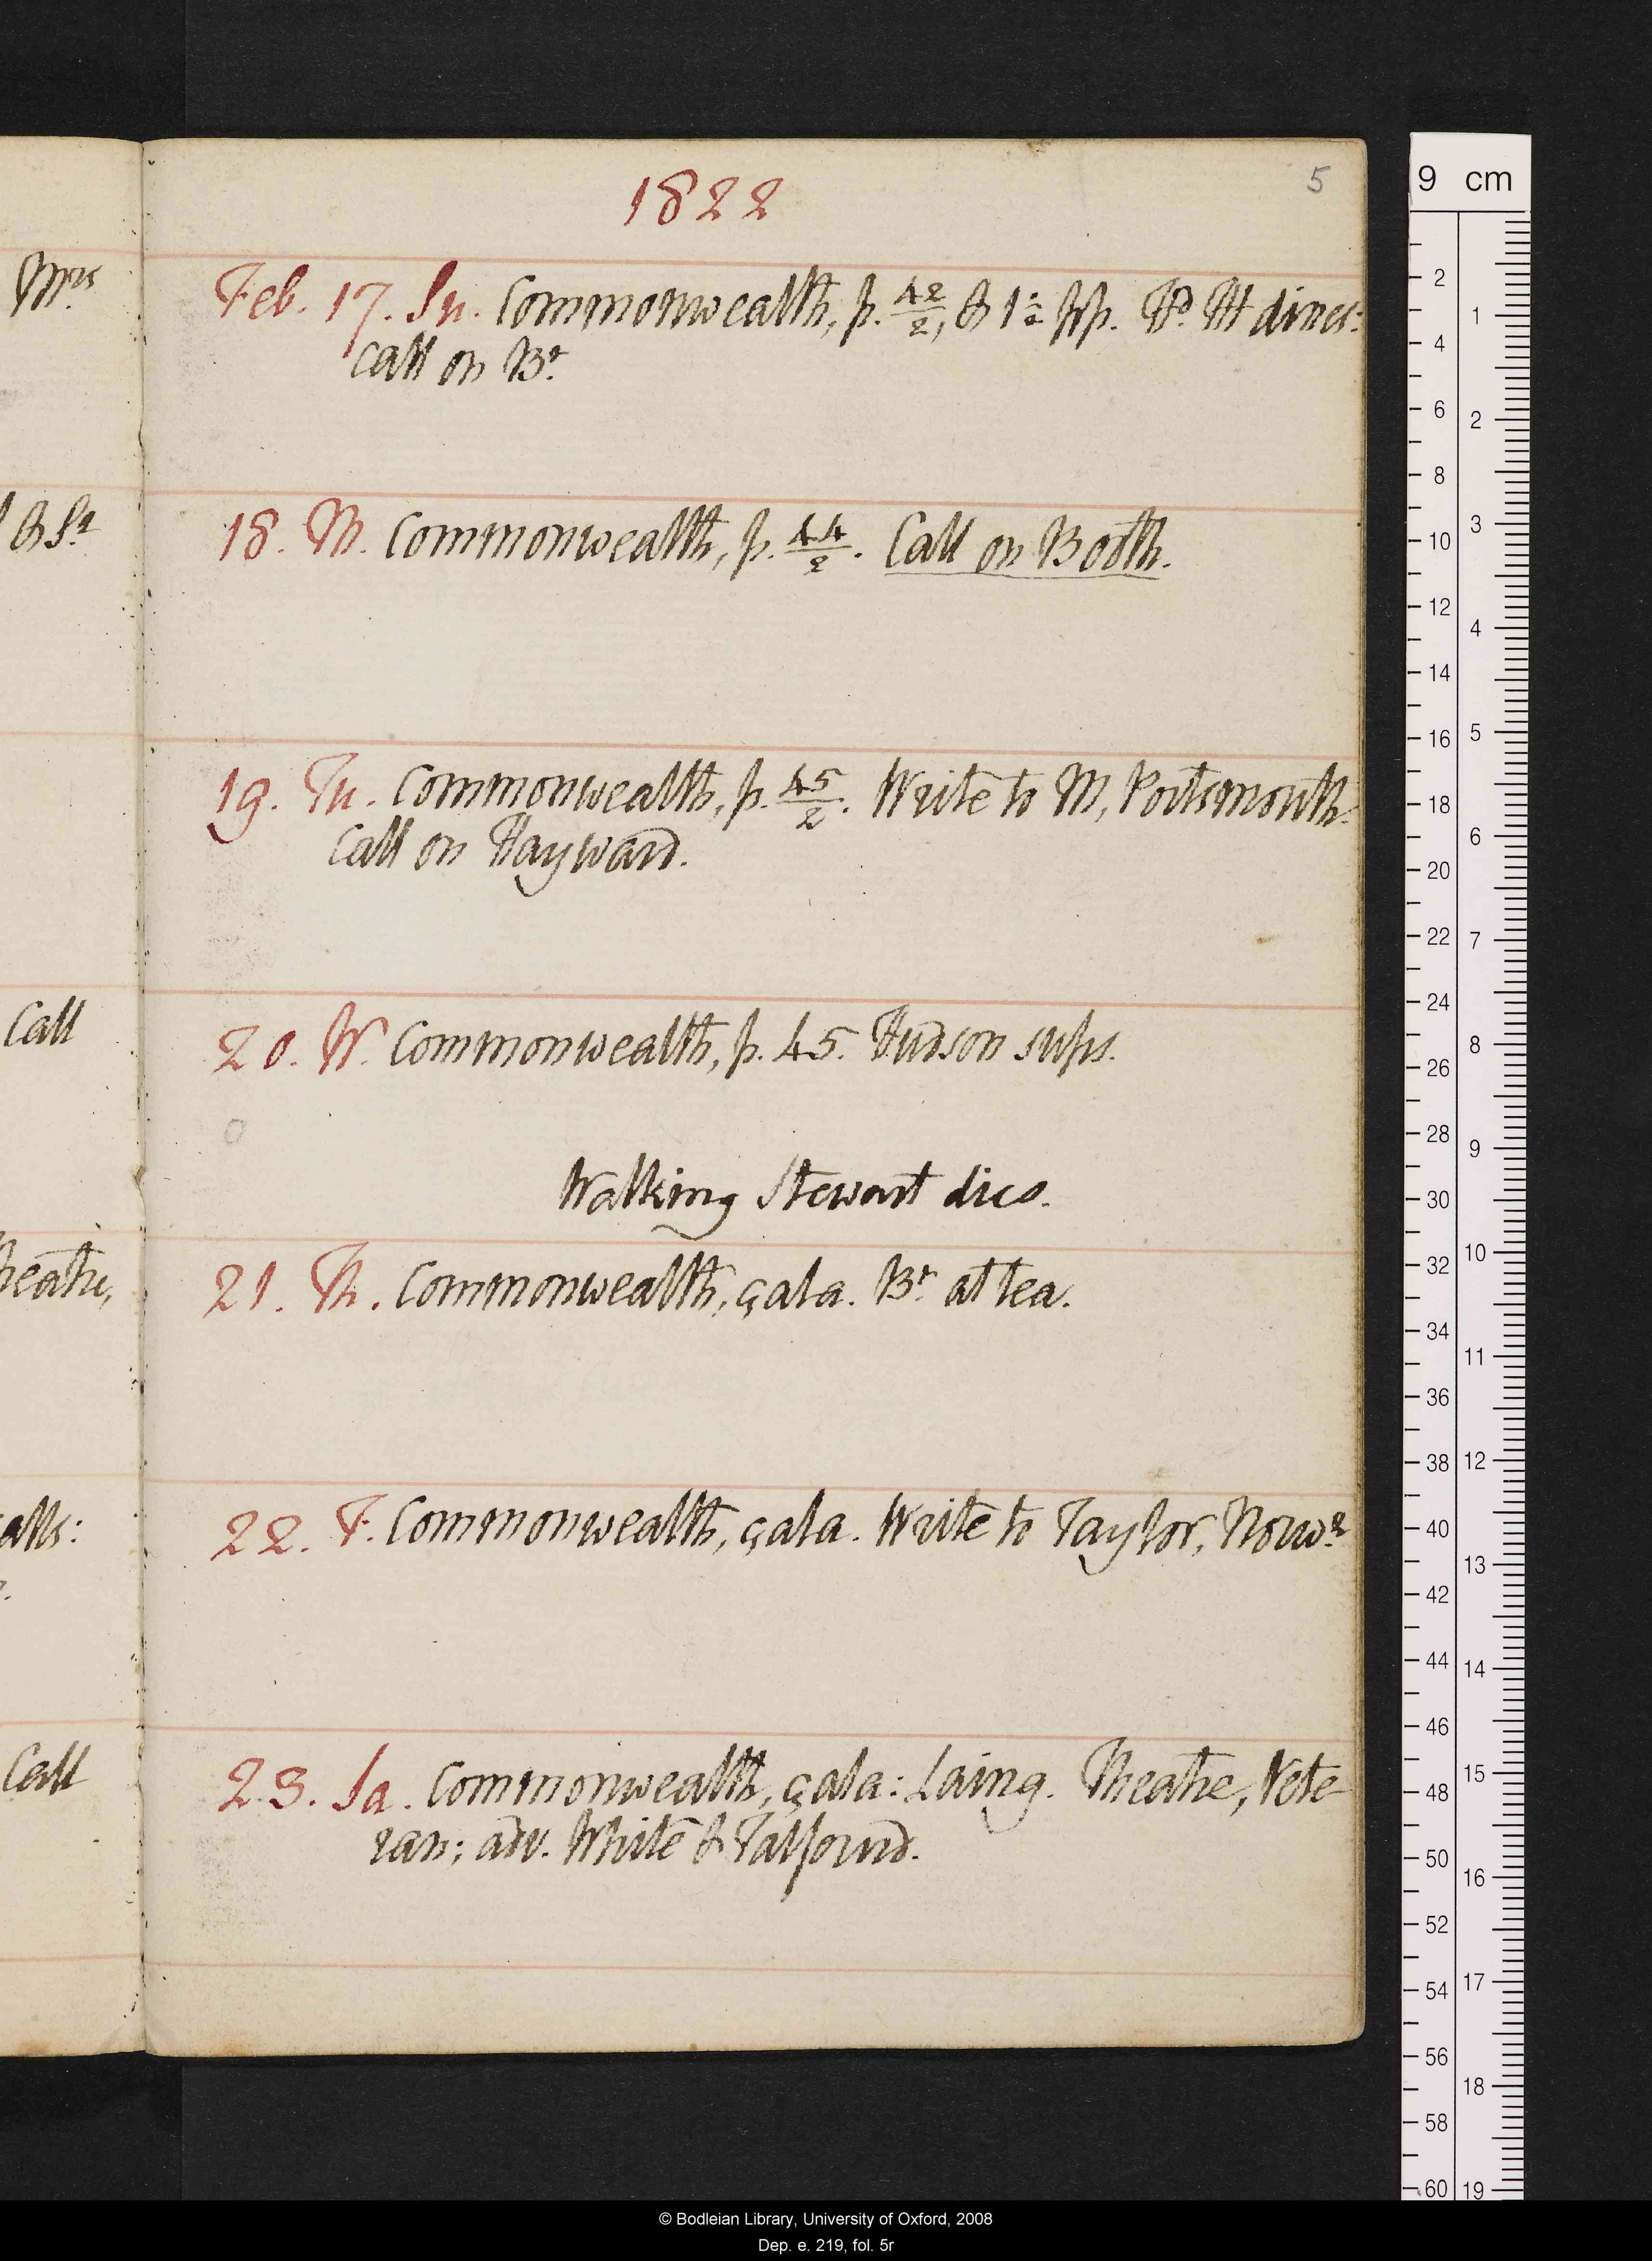 1822
5
Mrs
Feb. 17. Su. Commonwealth, p. 42/2, & 1 1/2 pp. Hd. H dines:
call on Br.
& Sr
18. M. Commonwealth, p. 44/2. Call on Booth.
19. Tu. Commonwealth, p. 45/2. Write to M, Portsmouth.
Call on Hayward.
Call
20. W. Commonwealth, p. 45. Hudson sups.
Walking Stewart dies.
heatre,
21. Th. Commonwealth, çala. Br. at tea.
alls:
22. F. Commonwealth, çala. Write to Taylor, Norwh
Call
23. Sa. Commonwealth, çala: Laing. Theatre, Vete-
ran; adv. White & Talfourd.
9 cm
2
4
6
8
10
12
14
16
18
20
22
24
26
28
30
32
34
36
38
40
42
44
46
48
50
52
54
56
58
60
1
2
3
4
5
6
7
8
9
10
11
12
13
14
15
16
17
18
19
© Bodleian Library, University of Oxford, 2008
Dep. e. 219, fol. 5r